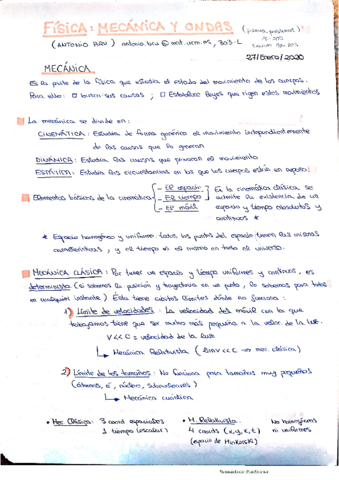 FÍSICA: MECÁNICA Y ONDAS
27/Enero/2020
MECÁNICA
Es la parte de la física que estudia el estado del movimiento de los cuerpos.
Para ello: buscar sus causas ; Establecer leyes que rigen estos movimientos
La mecánica se divide en:
CINEMÁTICA: Estudia de forma genérica el movimiento independientemente
de las causas que lo generan
DINÁMICA: Estudia las causas que provocan el movimiento
ESTÁTICA: Estudia las circunstancias en las que los cuerpos están en reposo
Elementos básicos de la cinemática
- El espacio
- El tiempo
- El móvil
En la cinemática clásica se
admite la existencia de un
espacio y tiempo absolutos y
continuos *
* Espacio homogéneo y uniforme: todos los puntos del espacio tienen las mismas
características, y el tiempo es el mismo en todo el universo.
MECÁNICA CLÁSICA: Por tener un espacio y tiempo uniformes y continuos, es
determinista (si sabemos la posición y trayectoria en un punto, lo sabemos para todos
en cualquier instante). Ésta tiene ciertos límites dónde no funciona:
1) Límite de velocidades: La velocidad del móvil con la que
trabajamos tiene que ser mucho más pequeña a la veloc. de la luz.
V<<C = velocidad de la luz
Mecánica Relativista (Si V<<C → mec. clásica)
2) Límite de los tamaños: No funciona para tamaños muy pequeños
(átomos, e⁻, núcleo, subnucleares)
Mecánica cuántica
• Mec Clásica: 3 coord espaciales
1 tiempo (escalar)
• M. Relativista
4 coords (x, y, z, t)
(espacio de Minkowski)
No homogéneos
ni uniformes